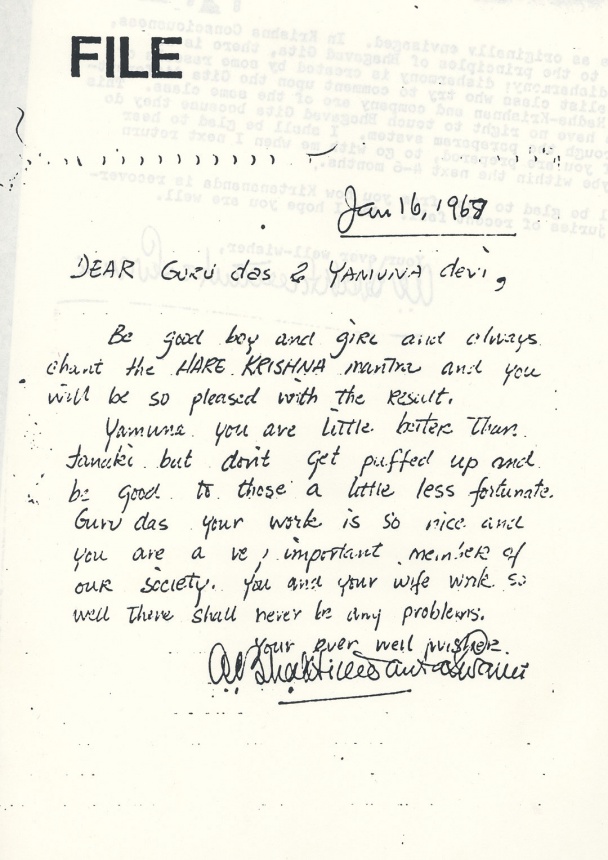 FILE
Jan 16, 1968
DEAR Guru das & YAMUNA devi,
Be good boy and girl and always
chant the HARE KRISHNA mantra and you
will be so pleased with the result.
Yamuna you are little better than
Janaki but don't get puffed up and
be good to those a little less fortunate.
Guru das your work is so nice and
you are a important member of
our society. You and your wife work so
well there shall never be any problems.
Your ever well wisher.
A.C. Bhaktivedanta Swami